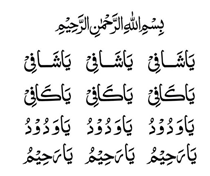 بِسْمِ اللهِ الرَّحْمٰنِ الرَّحِيْمِ
يَاشَافِيْ يَاشَافِيْ يَاشَافِيْ
يَاكَافِيْ يَاكَافِيْ يَاكَافِيْ
يَاوَدُوْدُ يَاوَدُوْدُ يَاوَدُوْدُ
يَارَحِيْمُ يَارَحِيْمُ يَارَحِيْمُ